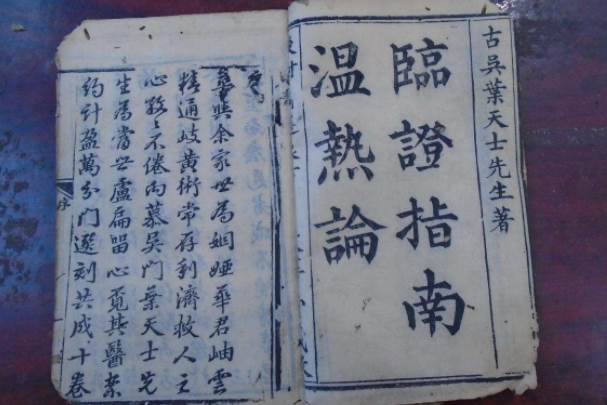 古吳葉天士先生著
臨證指南
溫熱論
序
與余家世為姻婭華君岫雲
精通岐黃術常存利濟救人之
心孜々不倦向慕吳門葉天士先
生為當世盧扁留心覓其醫案
約計盈萬分門選刻共成十卷
序